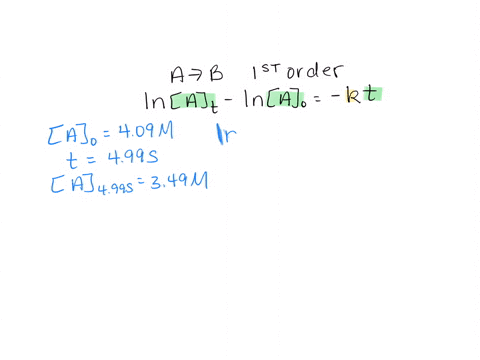 A → B 1ST order
ln[A]t - ln[A]0 = -kt
[A]0 = 4.09M ln
t = 4.99s
[A]4.99s = 3.49M